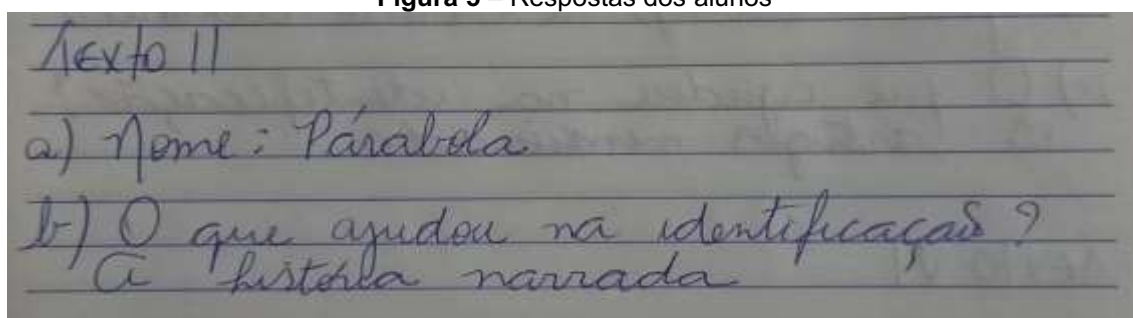 Figura 5 – Respostas dos alunos
Texto II
a) Nome: Párabola
b) O que ajudou na identificação?
A história narrada